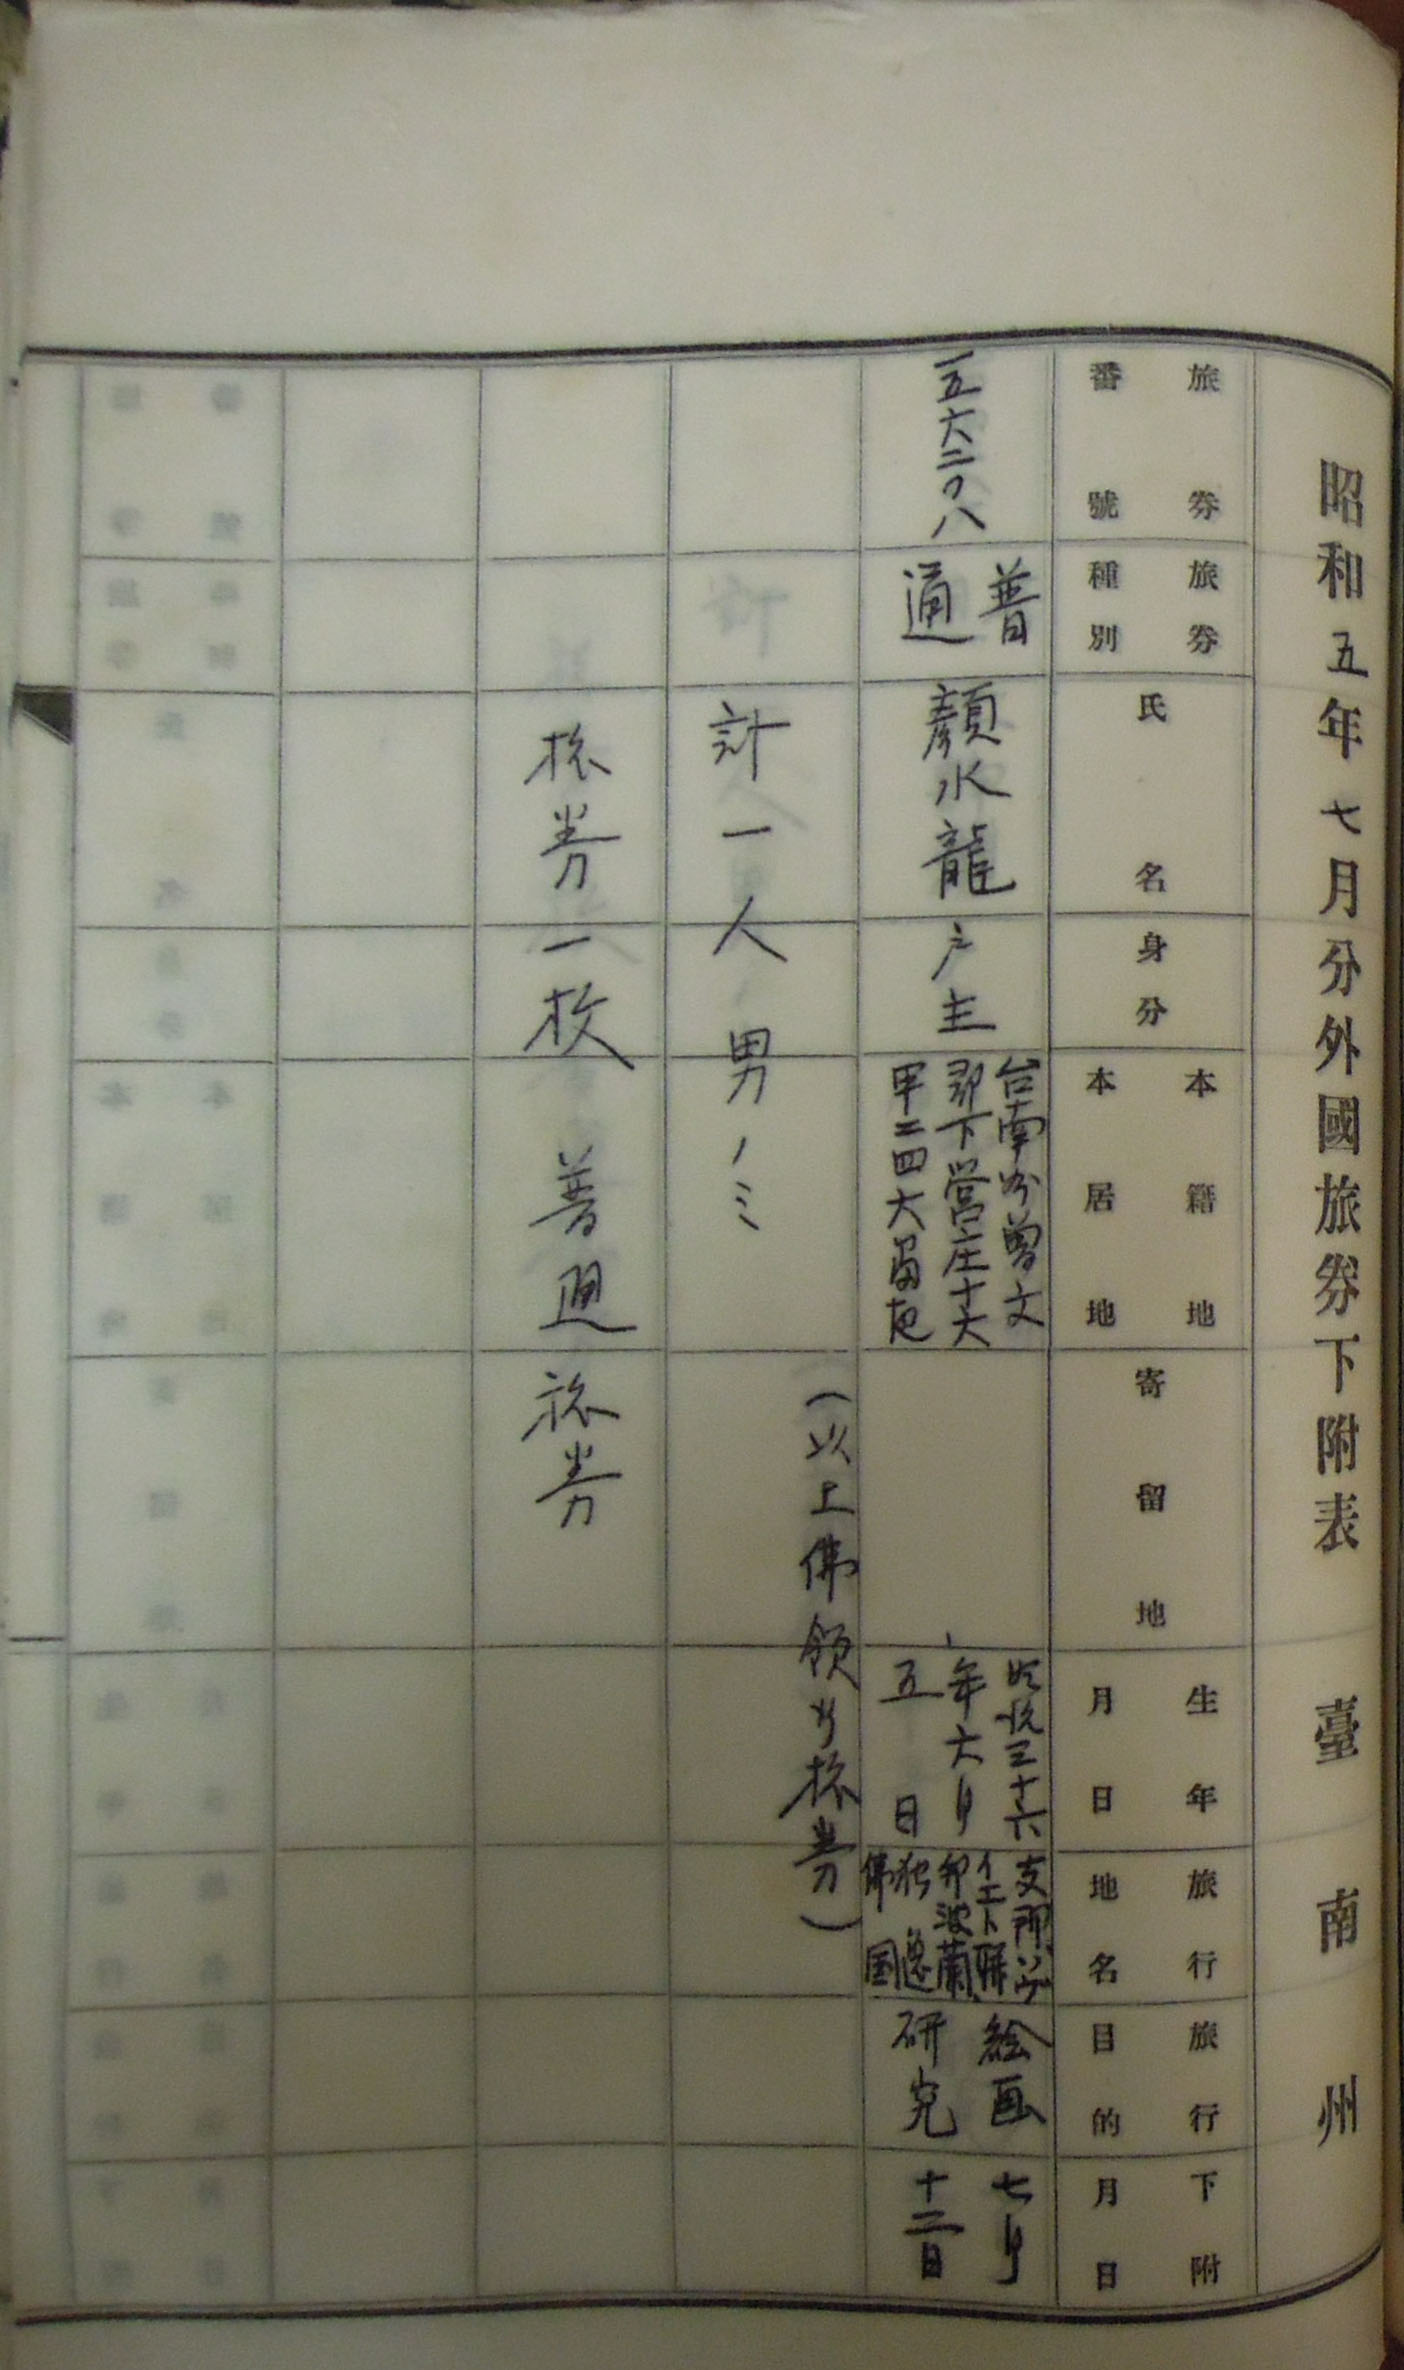 昭和五年七月分外國旅券下附表　臺南州
旅券番號
旅券種別
氏名
身分
本籍地本居地
寄留地
生年月日
旅行地名
旅行目的
下附月日
一五六二〇八
普通
顏水龍
戸主
台南州曽文
郡下営庄十六
甲二四六番地
明治三十六
年六月
五日
支那、ソヴ
イエト聯
邦、波蘭、
独逸
佛国
絵画
研究
七月
十二日
(以上佛領行旅券)
計一人男ノミ
旅券一枚　普通旅券